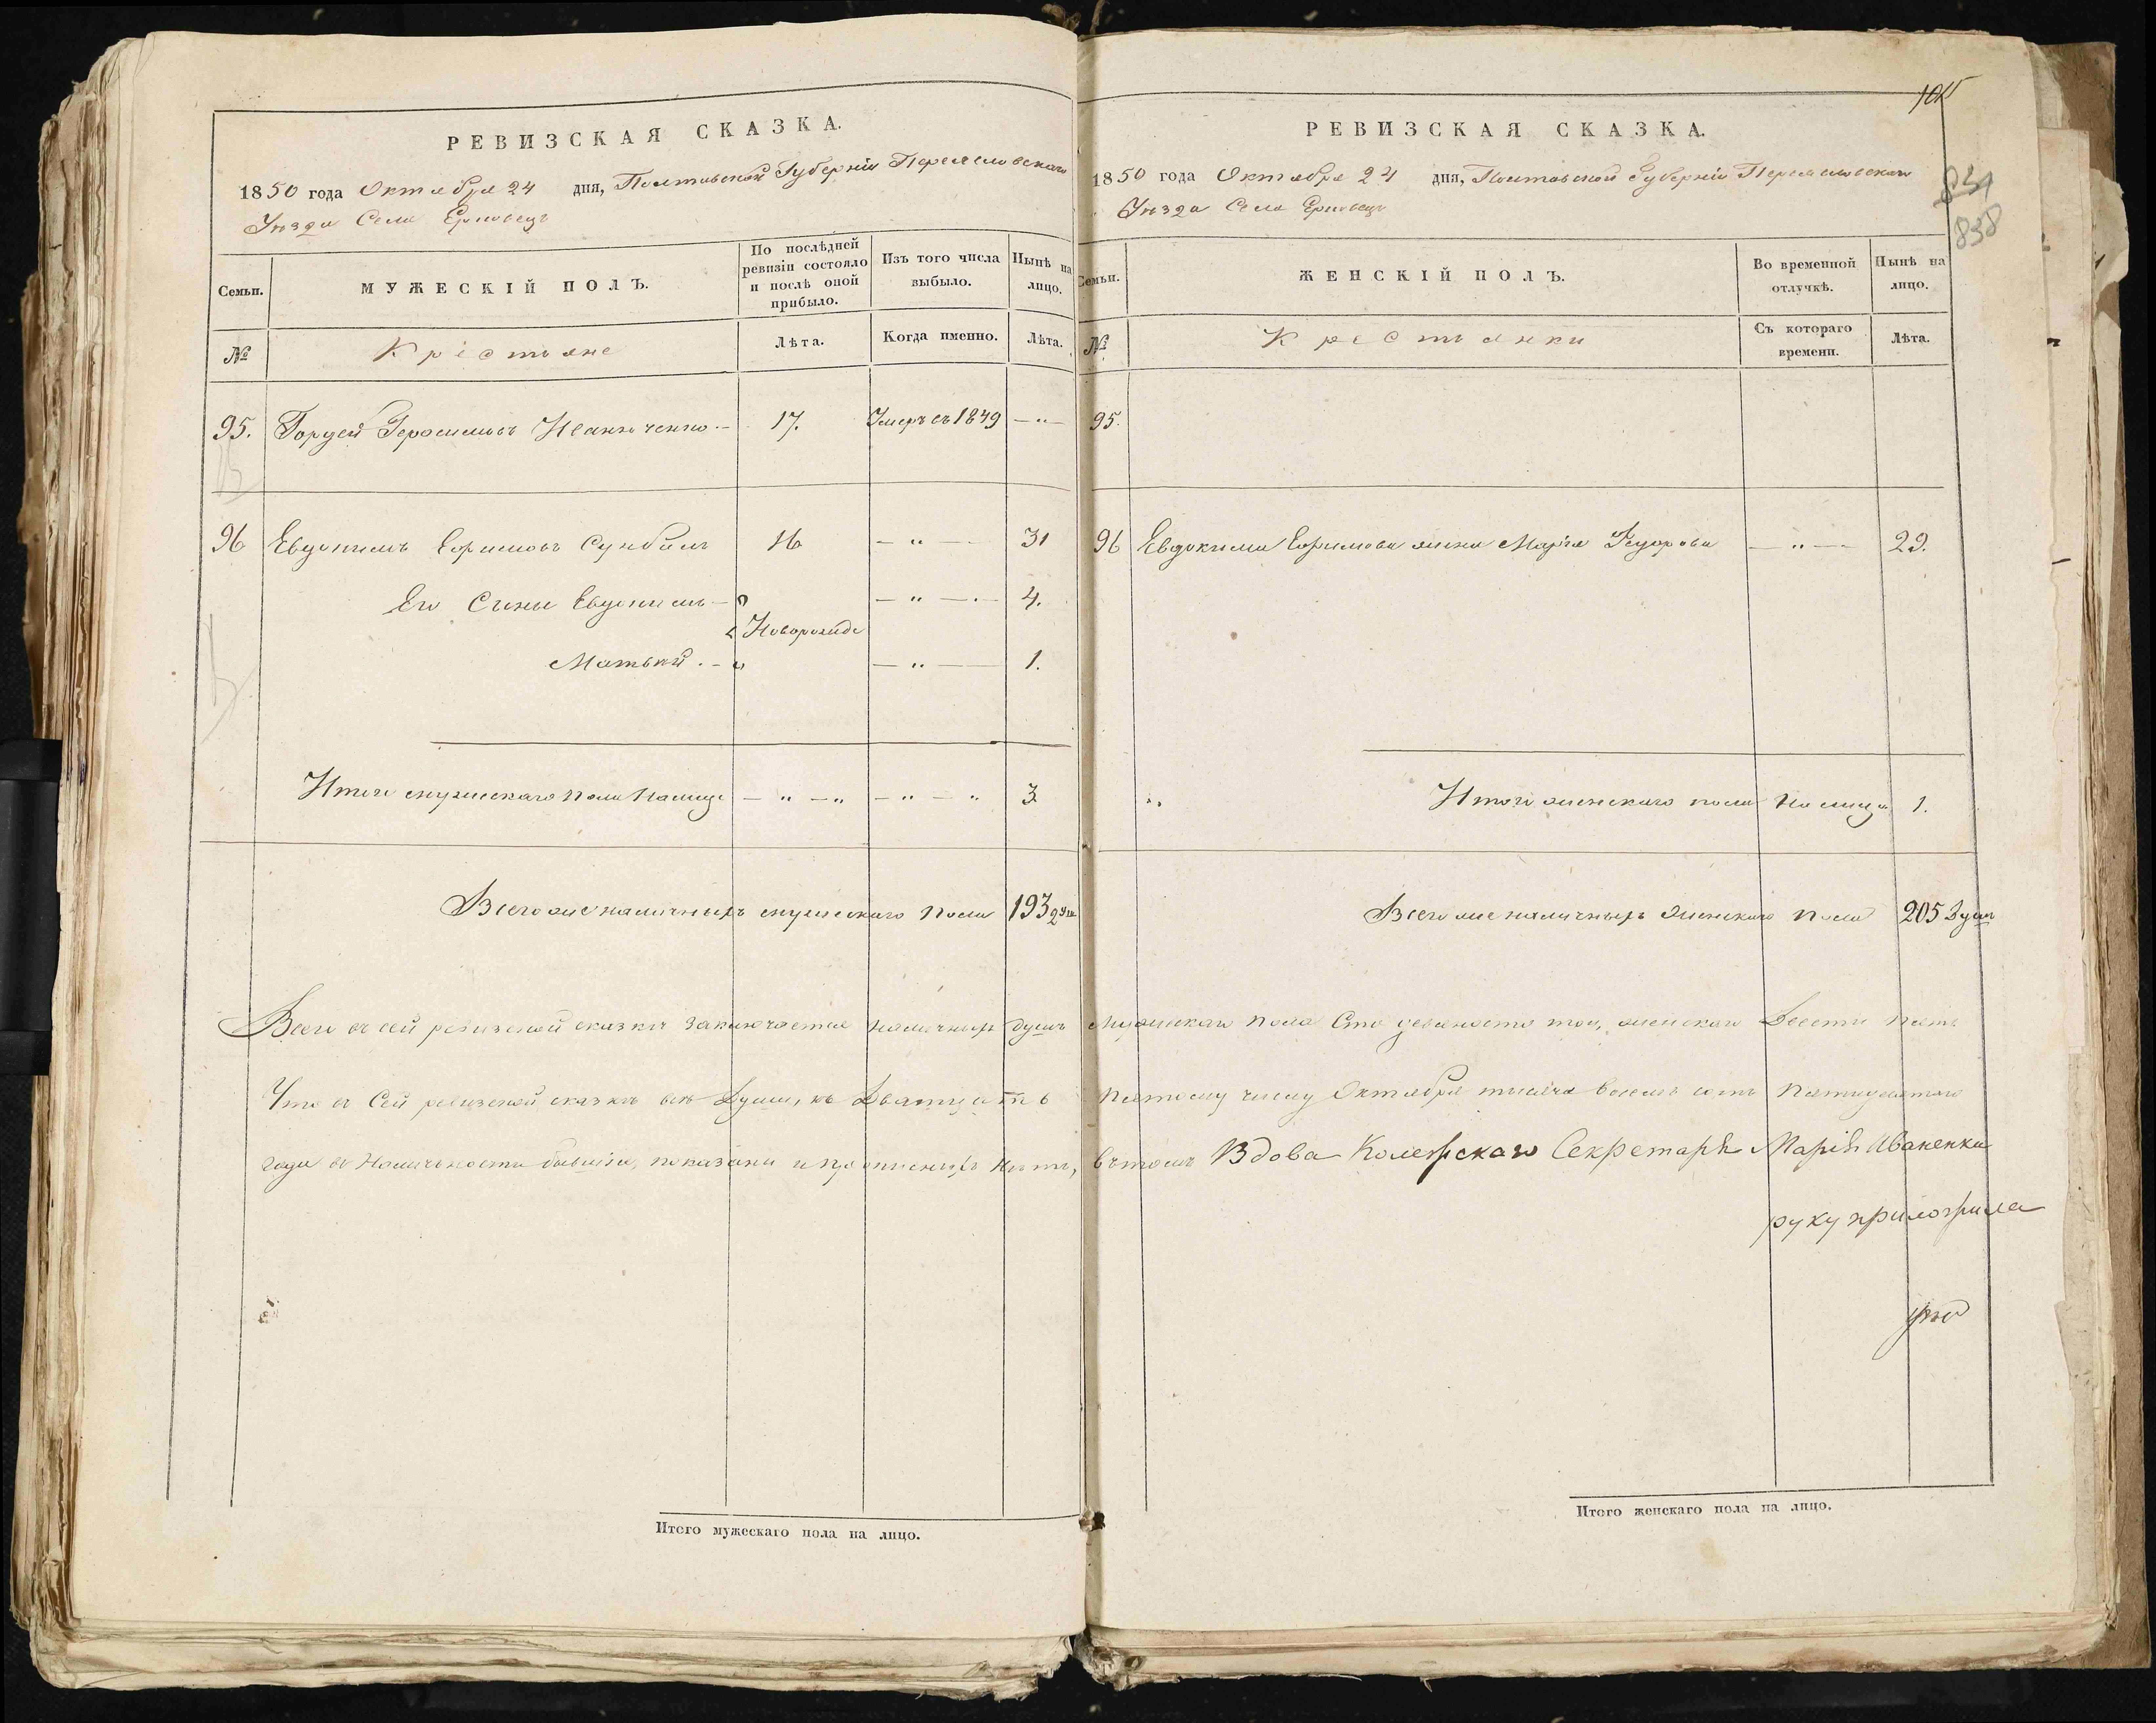 РЕВИЗСКАЯ СКАЗКА.
1850 года Октября 24 дня, Полтавской Губерніи Переяславскаго
Уѣзда Села Ерковецъ
Семьи.
МУЖЕСКІЙ ПОЛЪ.
По послѣдней ревизіи состояло и послѣ оной прибыло.
Изъ того числа выбыло.
Нынѣ на лицо.
№
Крестьяне
Лѣта.
Когда именно.
Лѣта.
95. Гордей Герасимовъ Иваниченко.— 17. Умеръ въ 1849 — „ —
96 Евдокимъ Ефимовъ Сунбалъ 16 — „ — 31
Его Сины Евдокимъ — „ — 4.
Новорожде
Матьвій . — — „ — 1.
Итого мужескаго пола на лицо — „ — „ — „ — „ 3.
Всего же наличныхъ мужескаго пола 193 душ
Всего въ сей ревизской сказкѣ заключается наличныхъ душъ
Что въ Сей ревизской сказкѣ всѣ Души, къ Дватцать
года въ Наличьности бывшіе, показаны и прописныхъ нѣтъ,
Итого мужескаго пола на лицо.
105
РЕВИЗСКАЯ СКАЗКА.
1850 года Октября 24 дня, Полтавской Губерніи Переяславскаго
Уѣзда Села Ерковецъ
838
Семьи.
ЖЕНСКІЙ ПОЛЪ.
Во временной отлучкѣ.
Нынѣ на лицо.
№
Крестьянки
Съ котораго времени.
Лѣта.
95.
96 Евдокима Ефимова жена Марія Федорова — „ — 29.
„ Итого женскаго пола на лицо 1.
Всего же наличныхъ Женскаго пола 205 Душъ
мужескаго пола Сто девяносто три, женскаго Двести пять
пятому числу Октября тысяча восемь сотъ пятидесятаго
въ томъ Вдова Колежскаго Секретаря Марія Иваненкова
руку приложила
Итого женскаго пола на лицо.